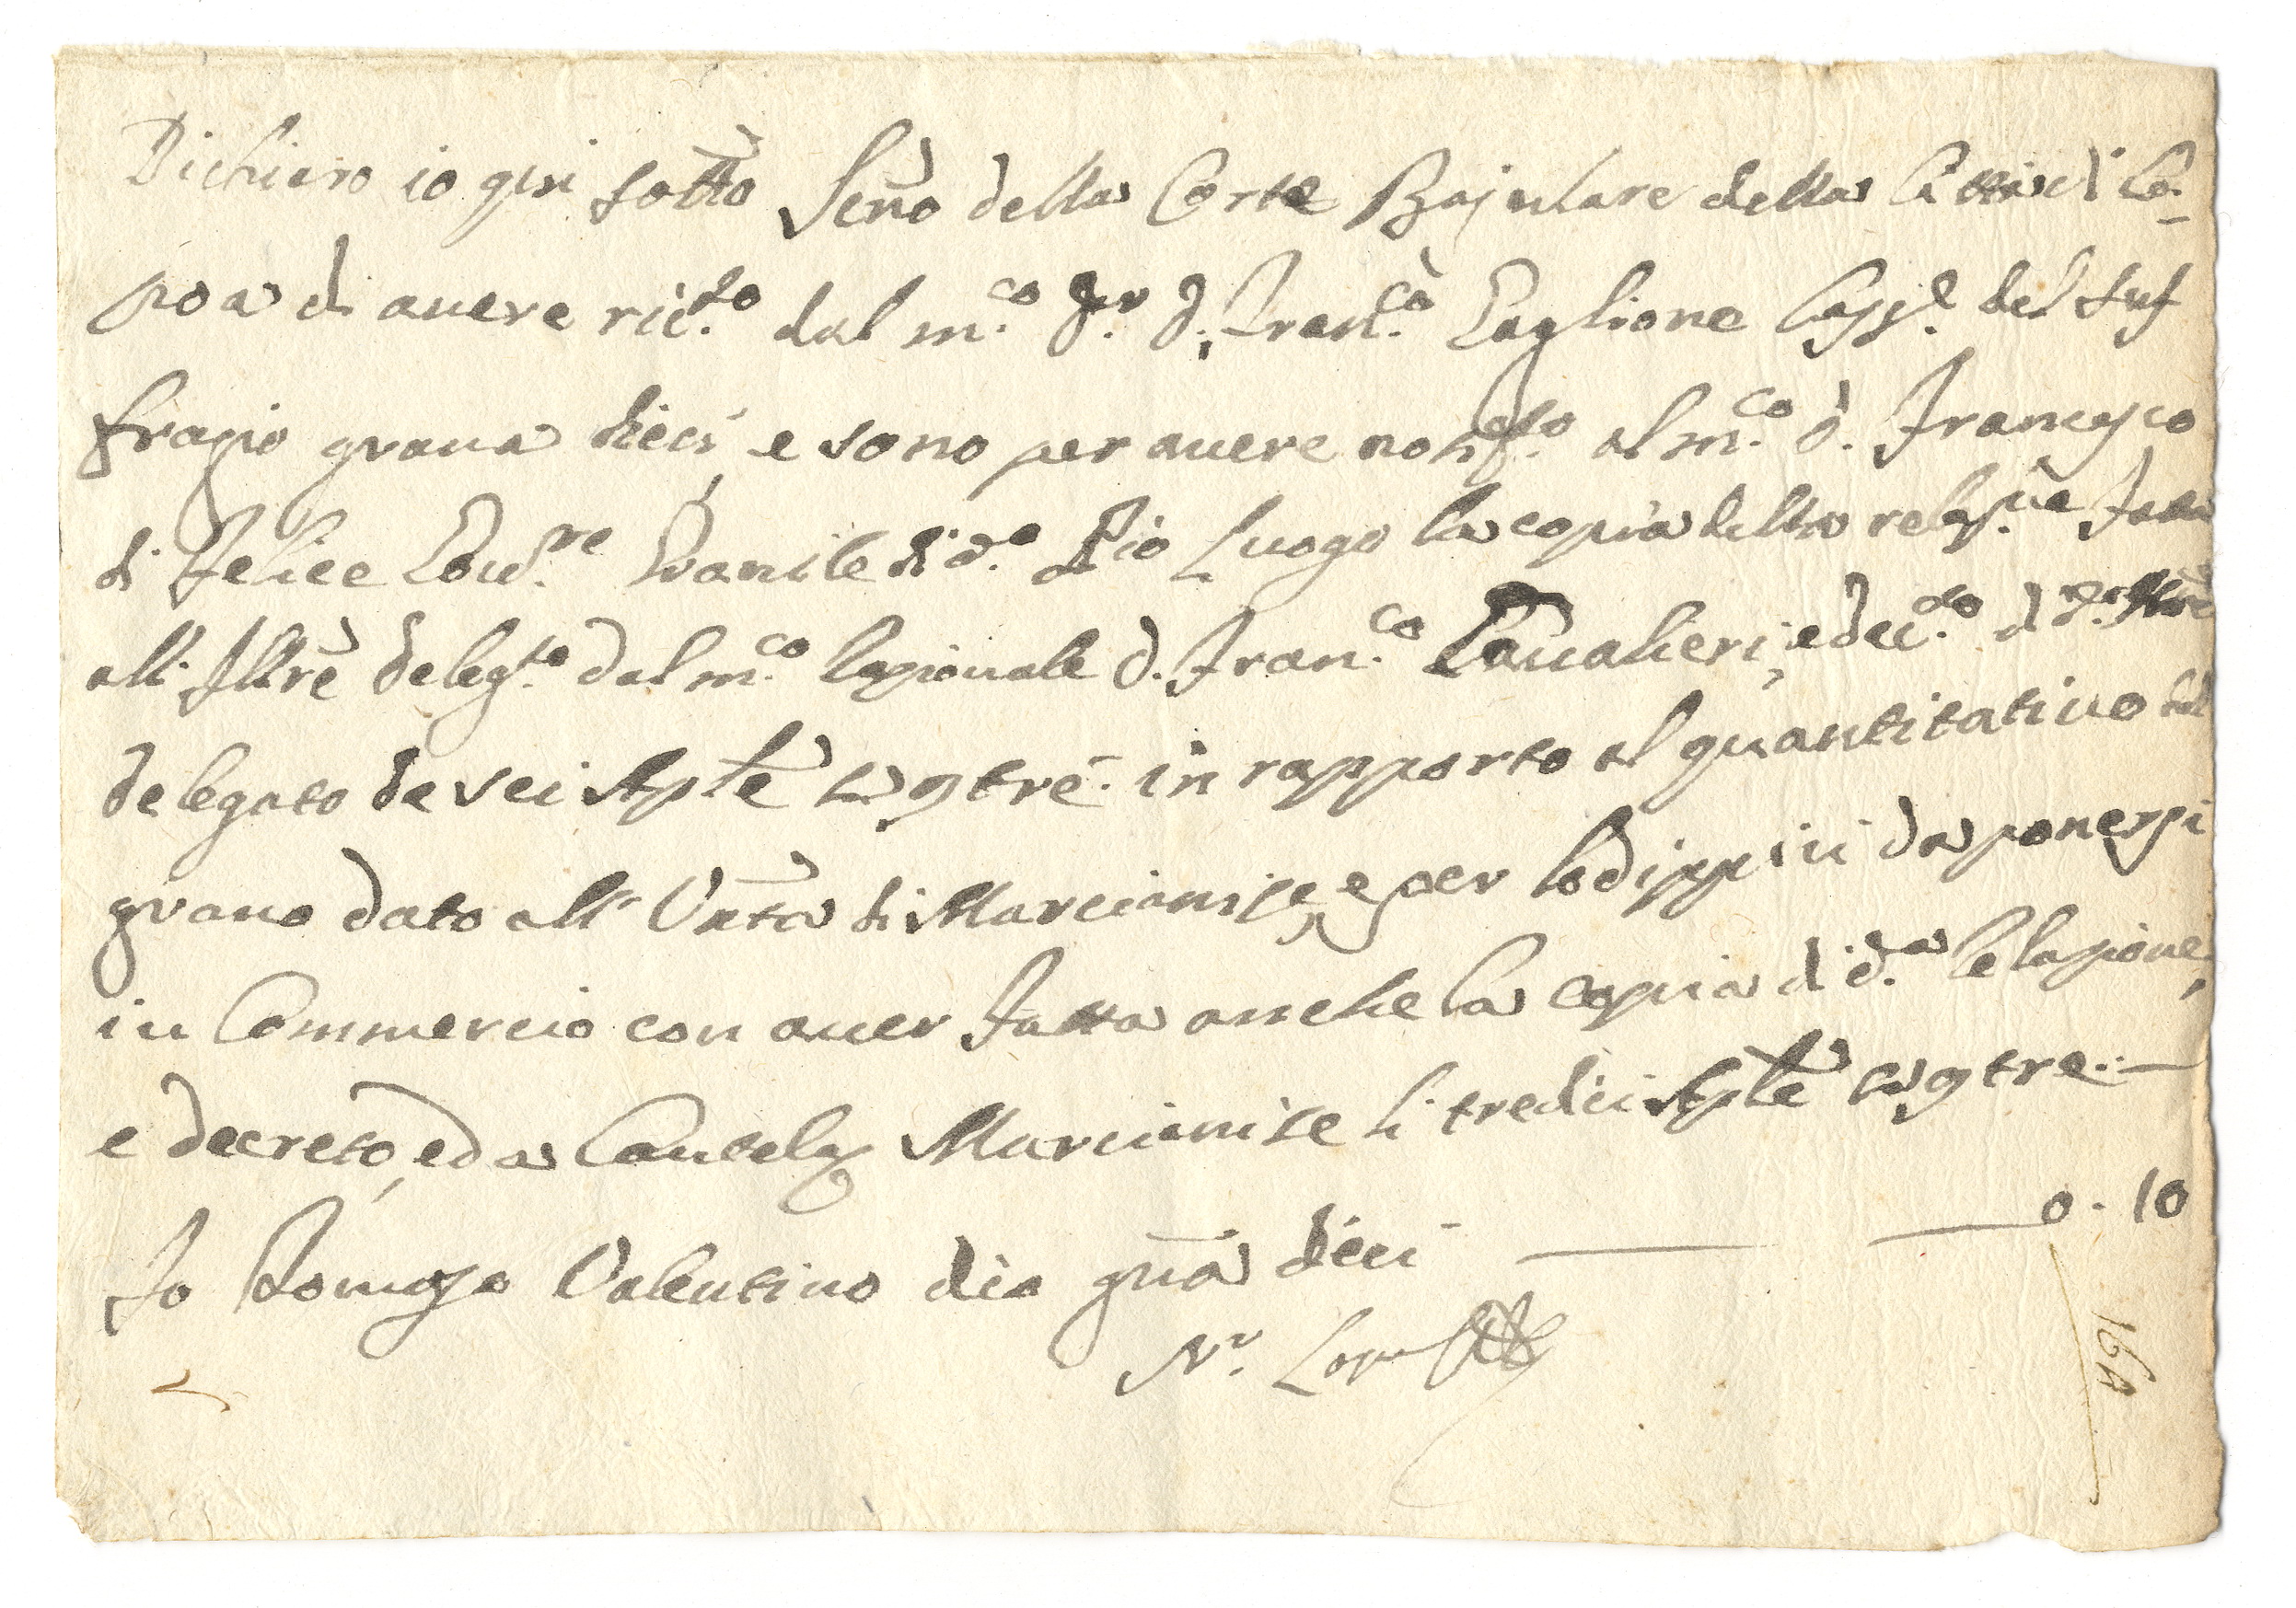 Dichiaro io qui sotto Serño della Corte Bajulare della Città di Ca-
poa di avere ric.to dal m.co D.r D. Fran.co Paglione Cass.e del Suf
fragio grana dieci, e sono per avere notif.to al m.co D. Francesco
di Felice Gov.re Pranile di d.o Pio Luogo la copia della relaz.ne fatta
all' Illre deleg.to dal m.co Razionale D. Fran.co Cavalieri, e dec.to di d.o Illre
delegato de sei Aplẽ corrẽ in rapporto al quantitativo del
grano dato all' Unta di Marcianise, e per lo di più da ponersi
in Commercio con aver fatta anche la copia di d.a Relazione,
e decreto, ed a Cautela Marcianise li tredici Aplẽ
Io Tomaso Valentino dico gña dieci 0 - 10
N.r
164